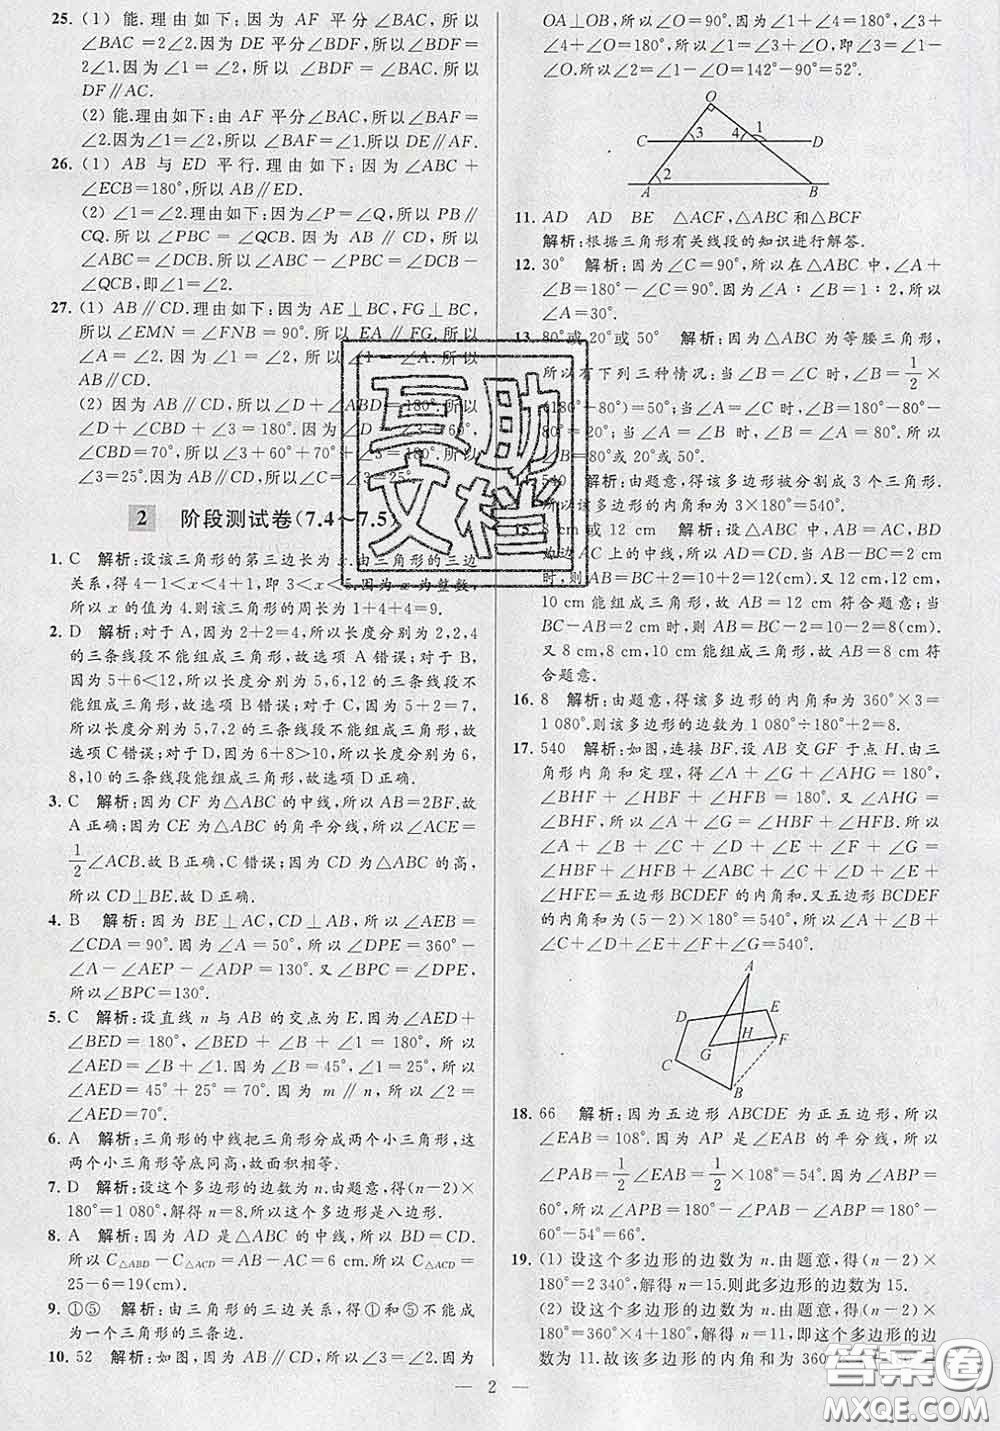 25. (1) 能.理由如下:因为 AF 平分∠BAC,所以
∠BAC=2∠2.因为 DE 平分∠BDF,所以∠BDF=
2∠1.因为∠1=∠2,所以∠BDF=∠BAC.所以
DF∥AC.
(2) 能.理由如下:由 AF 平分∠BAC,所以∠BAF=
∠2.因为∠1=∠2,所以∠BAF=∠1.所以 DE∥AF.
26. (1) AB 与 ED 平行.理由如下:因为∠ABC+
∠ECB=180°,所以 AB∥ED.
(2) ∠1=∠2.理由如下:因为∠P=∠Q,所以 PB∥
CQ.所以∠PBC=∠QCB.因为 AB∥CD,所以
∠ABC=∠DCB.所以∠ABC-∠PBC=∠DCB-
∠QCB,即∠1=∠2.
27. (1) AB∥CD.理由如下:因为 AE⊥BC,FG⊥BC,
所以∠EMN=∠FNB=90°.所以 EA∥FG.所以
∠A=∠2.因为∠1=∠2,所以∠1=∠A.所以
AB∥CD.
(2) 因为 AB∥CD,所以∠D+∠ABD=180°.所以
∠D+∠CBD+∠3=180°.因为∠D=∠3+60°,
∠CBD=70°,所以∠3+60°+70°+∠3=180°.所以
∠3=25°.因为 AB∥CD,所以∠C=∠3=25°.
2 阶段测试卷(7.4～7.5)
1. C 解析:设该三角形的第三边长为 x.由三角形的三边
关系,得 4-1<x<4+1,即 3<x<5.因为 x 为整数,
所以 x 的值为 4.则该三角形的周长为 1+4+4=9.
2. D 解析:对于 A,因为 2+2=4,所以长度分别为 2,2,4
的三条线段不能组成三角形,故选项 A 错误;对于 B,
因为 5+6<12,所以长度分别为 5,6,12 的三条线段
不能组成三角形,故选项 B 错误;对于 C,因为 5+2=7,
所以长度分别为 5,7,2 的三条线段不能组成三角形,故
选项 C 错误;对于 D,因为 6+8>10,所以长度分别为 6,
8,10 的三条线段能组成三角形,故选项 D 正确.
3. C 解析:因为 CF 为△ABC 的中线,所以 AB=2BF.故
A 正确;因为 CE 为△ABC 的角平分线,所以∠ACE=
1/2∠ACB.故 B 正确,C 错误;因为 CD 为△ABC 的高,
所以 CD⊥BE.故 D 正确.
4. B 解析:因为 BE⊥AC,CD⊥AB,所以∠AEB=
∠CDA=90°.因为∠A=50°,所以∠DPE=360°-
∠A-∠AEP-∠ADP=130°.又∠BPC=∠DPE,
所以∠BPC=130°.
5. C 解析:设直线 n 与 AB 的交点为 E.因为∠AED+
∠BED=180°,∠BED+∠B+∠1=180°,所以
∠AED=∠B+∠1.因为∠B=45°,∠1=25°,所以
∠AED=45°+25°=70°.因为 m∥n,所以∠2=
∠AED=70°.
6. A 解析:三角形的中线把三角形分成两个小三角形,这
两个小三角形等底同高,故面积相等.
7. D 解析:设这个多边形的边数为 n.由题意,得(n-2)×
180°=1 080°,解得 n=8.所以这个多边形是八边形.
8. A 解析:因为 AD 是△ABC 的中线,所以 BD=CD.
所以 C△ABD-C△ACD=AB-AC=6 cm.所以 C△ACD=
25-6=19(cm).
9. ①⑤ 解析:由三角形的三边关系,得①和⑤不能成
为一个三角形的三条边.
10. 52 解析:如图,因为 AB∥CD,所以∠3=∠2.因为
OA⊥OB,所以∠O=90°.因为∠1+∠4=180°,∠3+
∠4+∠O=180°,所以∠1=∠3+∠O,即∠3=∠1-
∠O.所以∠2=∠1-∠O=142°-90°=52°.
O
C 3 4 1 D
2
A B
11. AD AD BE △ACF,△ABC 和△BCF
解析:根据三角形有关线段的知识进行解答.
12. 30° 解析:因为∠C=90°,所以在△ABC 中,∠A+
∠B=180°-∠C=90°.因为∠A∶∠B=1∶2,所以
∠A=30°.
13. 80°或 20°或 50° 解析:因为△ABC 为等腰三角形,
所以有下列三种情况:当∠B=∠C 时,∠B=1/2×
(180°-80°)=50°;当∠A=∠C 时,∠B=180°-80°-
80°=20°;当∠A=∠B 时,∠B=∠A=80°.所以
∠B=80°或 20°或 50°.
540 解析:由题意,得该多边形被分割成 3 个三角形.
所以该多边形的内角和为 3×180°=540°.
15. 8 cm 或 12 cm 解析:设△ABC 中,AB=AC,BD
为边 AC 上的中线,所以 AD=CD.当 AB-BC=2 cm
时,则 AB=BC+2=10+2=12(cm).又 12 cm,12 cm,
10 cm 能组成三角形,故 AB=12 cm 符合题意;当
BC-AB=2 cm 时,则 AB=BC-2=10-2=8(cm).
又 8 cm,8 cm,10 cm 能组成三角形,故 AB=8 cm 符
合题意.
16. 8 解析:由题意,得该多边形的内角和为 360°×3=
1 080°.则该多边形的边数为 1 080°÷180°+2=8.
17. 540 解析:如图,连接 BF.设 AB 交 GF 于点 H.由三
角形内角和定理,得∠A+∠G+∠AHG=180°,
∠BHF+∠HBF+∠HFB=180°.又∠AHG=
∠BHF,所以∠A+∠G=∠HBF+∠HFB.所以
∠A+∠G+∠ABC+∠C+∠D+∠E+∠HFE=
∠HBF+∠HFB+∠ABC+∠C+∠D+∠E+
∠HFE=五边形 BCDEF 的内角和.又五边形 BCDEF
的内角和为(5-2)×180°=540°,所以∠A+∠B+
∠C+∠D+∠E+∠F+∠G=540°.
A
D E
H F
G
C
B
18. 66 解析:因为五边形 ABCDE 为正五边形,所以
∠EAB=108°.因为 AP 是∠EAB 的平分线,所以
∠PAB=1/2∠EAB=1/2×108°=54°.因为∠ABP=
60°,所以∠APB=180°-∠PAB-∠ABP=180°-
60°-54°=66°.
19. (1) 设这个多边形的边数为 n.由题意,得(n-2)×
180°=2 340°,解得 n=15.则此多边形的边数为 15.
(2) 设这个多边形的边数为 n.由题意,得(n-2)×
180°=360°×4-180°,解得 n=11,即这个多边形的边
数为 11.故该多边形的内角和为 360°×
— 2 —
互助
文档
答案圈
MXQE.COM